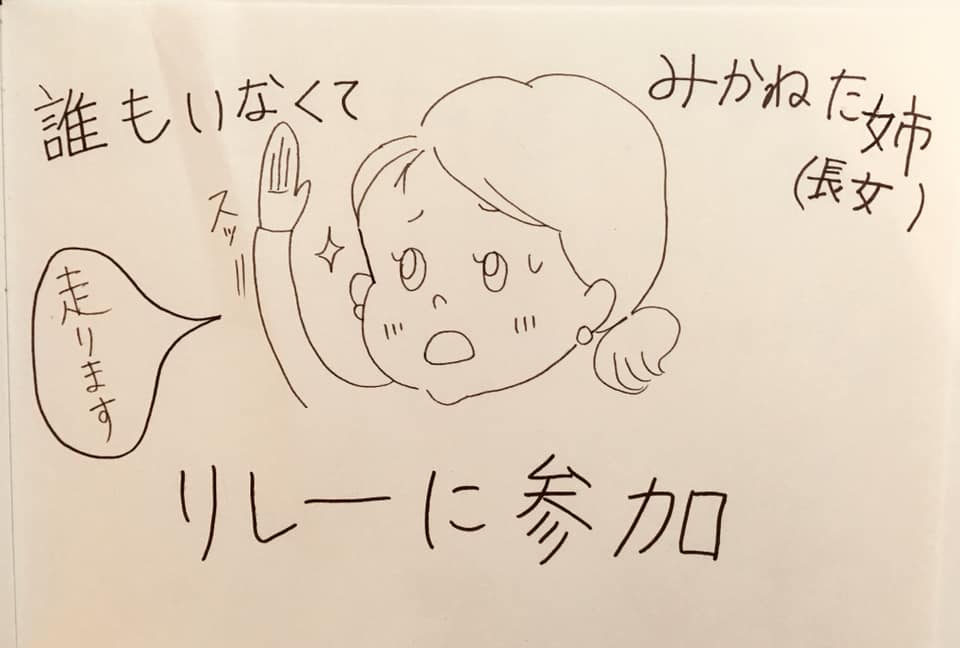 みかねた姉
(長女)
誰もいなくて
スッ
走ります
リレーに参加